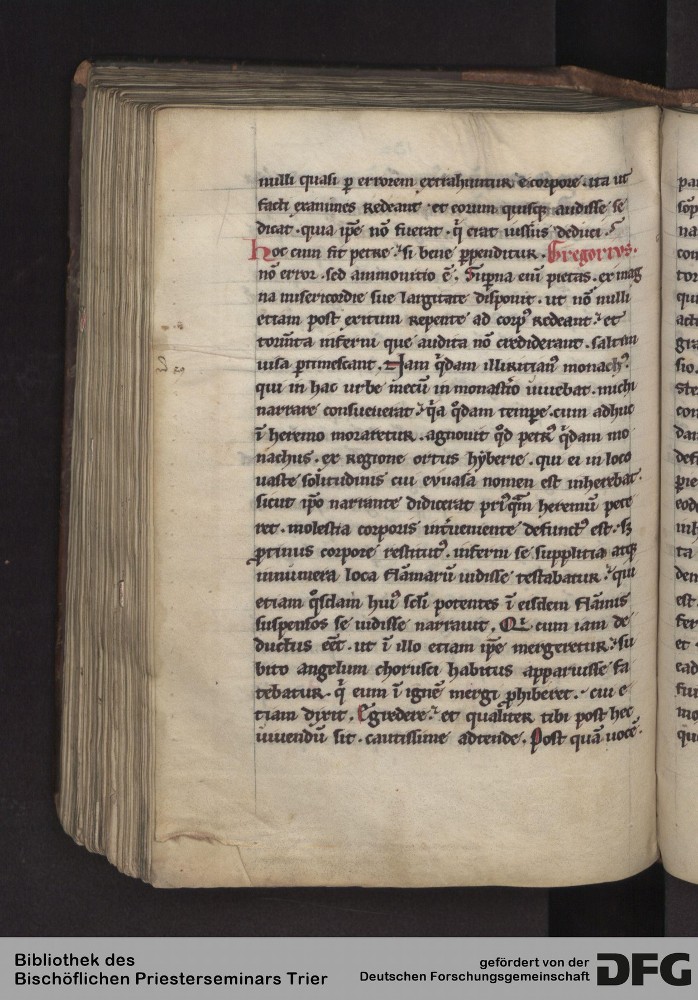 nulli quasi ꝑ errorem extrahuntur e corpore. ita ut
facti exanimes redeant. et eorum quisq; audisse se
dicat. quia ip̄e nō fuerat. q̄ erat iussus deduci.
Hoc cum fit petre. si bene ꝑpenditur. Gregorius.
nō error. sed ammonitio ē. Superna eni᷑ pietas. ex mag
na misericordie sue largitate disponit. ut nō nulli
etiam post exitum repente ad corpꝰ redeant. et
torm̄ta inferni que audita nō crediderant. saltim
uisa pertimescant. Nam q̇dam illiricianꝰ monachꝰ.
qui in hac urbe mecū in monast̄io uiuebat. michi
narrare consueuerat. q̇a q̊dam tempe. cum adhuc
ī heremo moraretur. agnouit q̊d petrꝰ q̇dam mo
nachus. ex regione ortus hyberie. qui ei in loco
uaste solitudinis cui euuasa nomen est inherebat.
sicut ip̄o narrante didicerat priꝰq̄m heremū pete
ret. molestia corporis int̄ueniente defunctꝰ est. sꝫ
ꝓtinus corpore restitutꝰ. inferni se supplitia atq;
innumera loca flāmarū uidisse testabatur. qui
etiam q̊sdam huiꝰ sc̄li potentes ī eisdem flāmis
suspensos se uidisse narrauit. Qi. cum iam de
ductus eēt. ut ī illo etiam ip̄e mergeretur. su
bito angelum chorusci habitus apparuisse fa
tebatur. q̇ eum ī ignē mergi ꝓhiberet. cui e
tiam dixit. Egredere. et qualiter tibi post hec
uiuendū sit. cautissime adtende. Post quā uocē.
Bibliothek des
Bischöflichen Priesterseminars Trier
gefördert von der
Deutschen Forschungsgemeinschaft
DFG